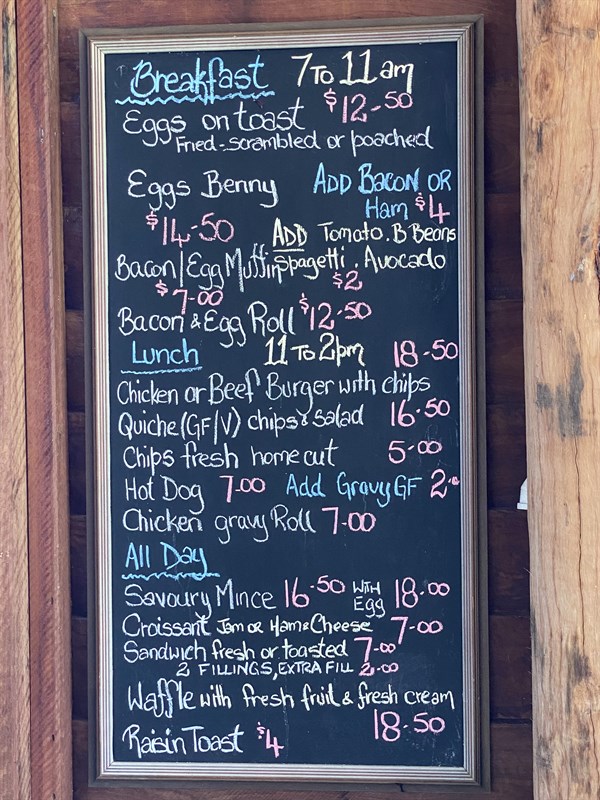 Breakfast 7 To 11am
Eggs on toast $12-50
Fried-scrambled or poached
Eggs Benny ADD BACON OR
Ham $4
$14-50 ADD Tomato. B Beans
Bacon/Egg Muffin Spagetti. Avocado
$7-00 $2
Bacon & Egg Roll $12-50
Lunch 11 To 2pm 18-50
Chicken or Beef Burger with chips
Quiche (GF/V) chips & salad 16-50
Chips fresh home cut 5-00
Hot Dog 7-00 Add Gravy GF 2-00
Chicken gravy Roll 7-00
All Day
Savoury Mince 16-50 WITH Egg 18-00
Croissant Jam or Ham & Cheese 7-00
Sandwich fresh or toasted 7-00
2 FILLINGS, EXTRA FILL 2-00
Waffle with fresh fruit & fresh cream
18-50
Raisin Toast $4